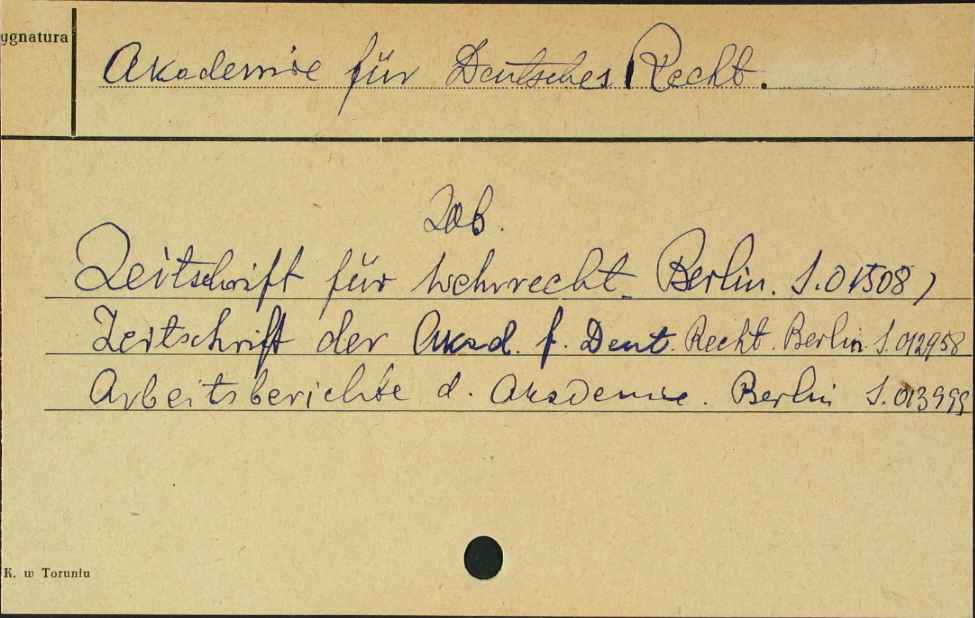 ygnatura
Akademie für Deutsches Recht.
Zob.
Zeitschrift für Wehrrecht. Berlin. S.01508)
Zeitschrift der Akad. f. Deut. Recht. Berlin S.012958
Arbeitsberichte d. Akademie. Berlin S.013999
K. w Toruniu